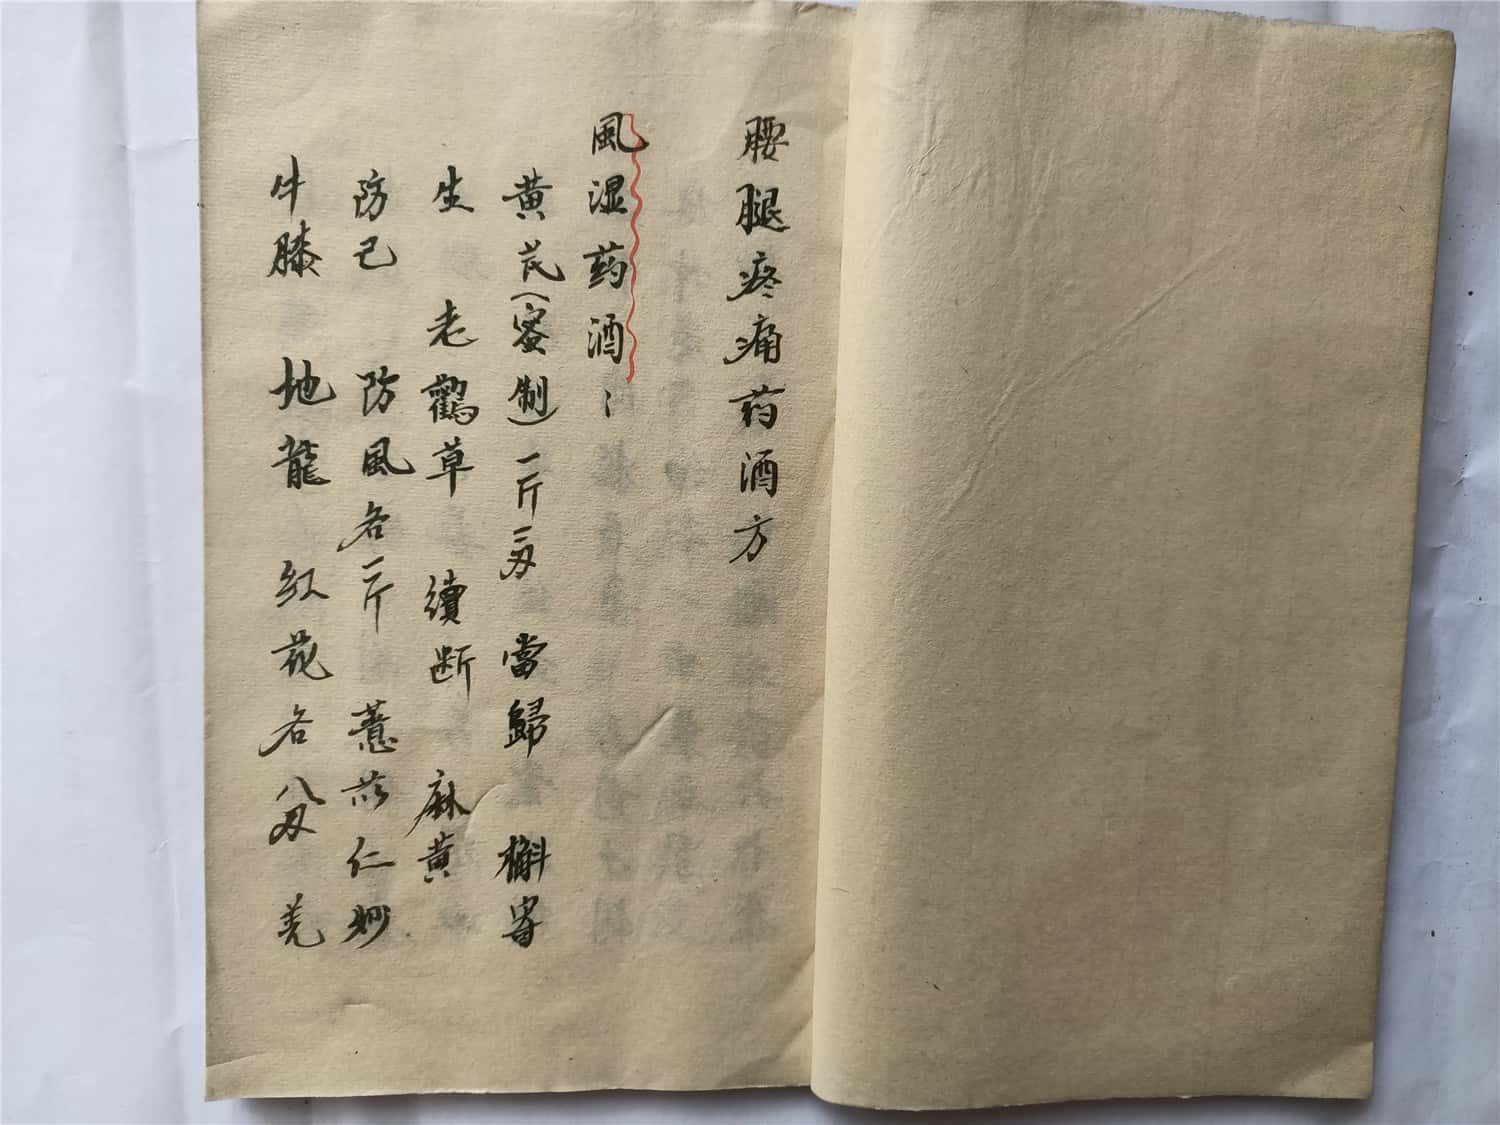 腰腿疼痛药酒方
風湿药酒：
黄芪（蜜制）一斤二刄 當歸 槲寄
生 老鸛草 續断 麻黄
防己 防風各一斤 薏苡仁炒
牛膝 地龍 红花各八刄 羌